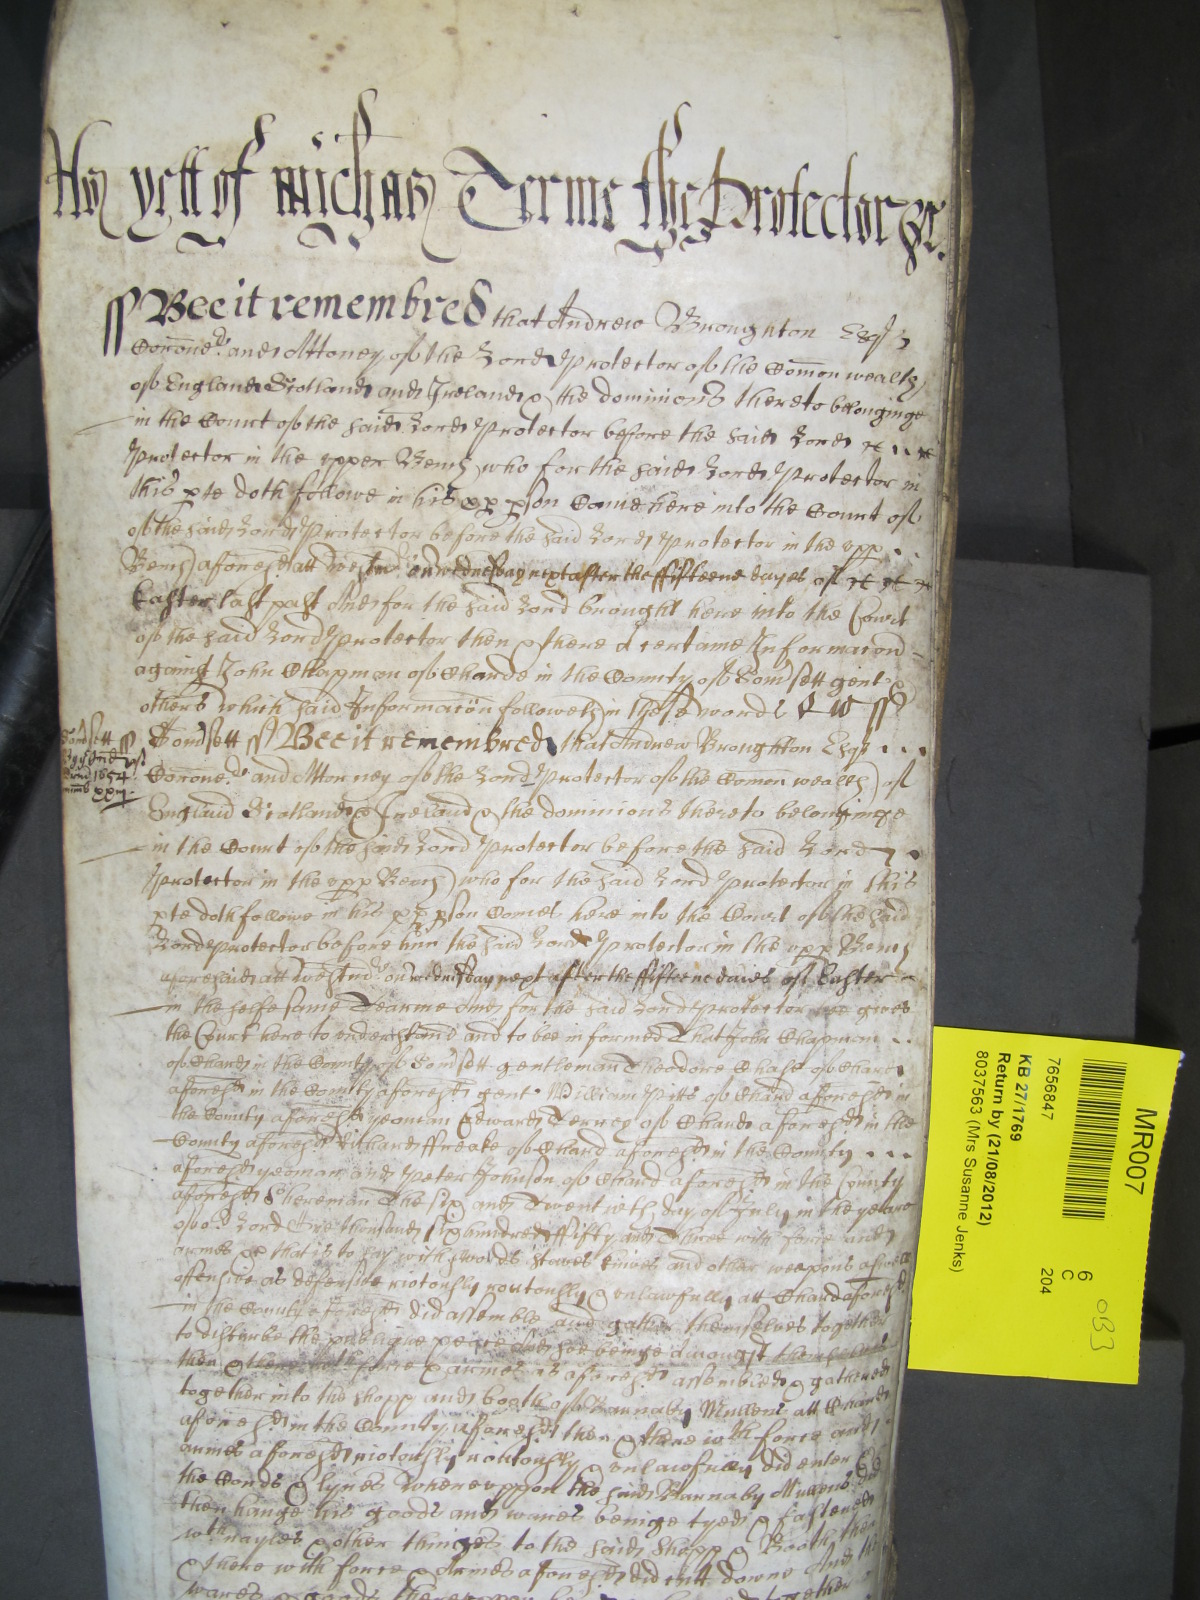 As yett of Michas Terme the Protector &c.
ss Bee it remembred that Andrew Broughton Esqr
Coroner and Attorney of the Lord Protector of the Comon wealth
of England Scotland and Ireland & the dominions thereto belonginge
in the Court of the said Lord Protector before the said Lord
Protector in the upper Bench who for the said Lord Protector in
this pte doth followe in his pp pson Came here into the Court of
of the said Lord Protector before the said Lord Protector in the upp
Bench aforesd att Westmr on wednesday next after the fifteene dayes of
Easter last past And for the said Lord brought here into the Court
of the said Lord Protector then & there a certaine Informacon
against John Chapman of Chard in the County of Somsett gent &
others which said Informacon followeth in these words
Somsett ss Bee it remembred that Andrew Broughton Esqr
Somsett ss
1654
Coroner and Attorney of the Lord Protector of the Comon wealth of
England Scotland & Ireland & the dominions thereto belonginge
in the Court of the said Lord Protector before the said Lord
Protector in the upp Bench who for the said Lord Protector in this
pte doth followe in his pp pson Comes here into the Court of the said
Lord Protector before him the said Lord Protector in the upp Bench
aforesaid att Westmr on wednesday next after the fifteene daies of Easter
in the selfe same Tearme And for the said Lord Protector gives
the Court here to understand and to bee informed That John Chapman
of Chard in the County of Somsett gentleman Theodore Chase of Chard
aforesd in the County aforesd gent William Pitts of Chard aforesd in
the County aforesd yeoman Edward of Chard aforesd in the
County aforesd Richard ffreake of Chard aforesd in the County
aforesd yeoman and Peter Johnson of Chard aforesd in the County
aforesd Shereman The six and Twentieth day of July in the yeare
of or Lord One thousand six hundred ffifty and Three with force and
armes &c that is to say with swords staves knives and other weapons aswell
offensive as defensive riotously routously & unlawfully att Chard aforesd
in the County aforesd did assemble and gather themselves together
to disturbe the publique peace And soe beinge amongst themselves
then & there with force & armes as aforesd assembled & gathered
together into the shopp and booth of Barnaby Mullens att Chard
aforesd in the County aforesd then & there with force and
armes aforesd riotously routously & unlawfully did enter And
the Cords & lynes whereuppon the said Barnaby Mullens did
then hange his goods and wares beinge tyed & fastened
wth nayles & other things to the said shopp & Booth then
& there with force & Armes aforesd did cutt downe And the
wares & goods thereuppon together
MR007
7656847
KB 27/1769
Return by (21/08/2012)
8037563 (Mrs Susanne Jenks)
6
C
204
033